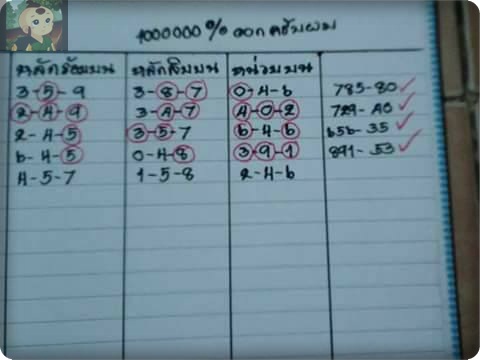 1000000 % ออก ครับผม
หลักร้อยบน หลักสิบบน หน่วยบน
3-5-9 3-8-7 0-4-6 785-80 ✓
2-4-9 3-4-7 4-0-2 729-40 ✓
2-4-5 3-5-7 6-4-6 656-35 ✓
6-4-5 0-4-8 3-9-1 891-53 ✓
4-5-7 1-5-8 2-4-6